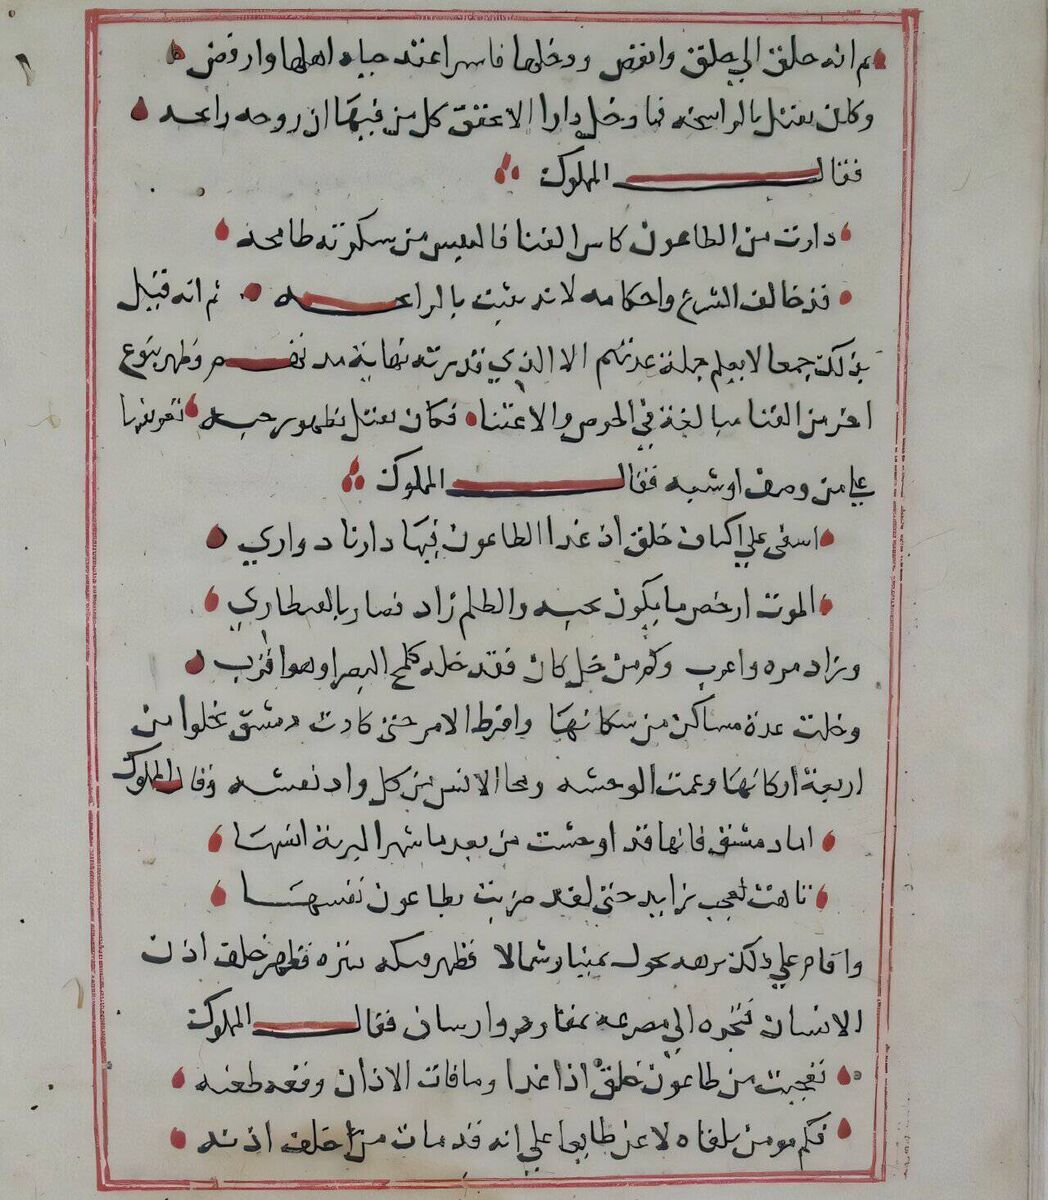 ثم انه حلق الي جلق وانقض ودخلها فاسرا عنده جياد اهلها وارفض
وكان يقتل بالرايحه فما دخل دارا الا عقق كل من فيها ان روحه رايحه
فقال المملوك
دارت من الطاعون كاس الفنا فالنفس من سكرته طافحه
قد خالف الشرع واحكامه لانه يثبت بالرايحه ثم انه قتل
بذلك جمعا لا يعلم جملة عدتهم الا الذي قدرته نهاية مددهم وظهر بنوع
اخر من الفنا مبالغة في الحرص والاعتنا فكان يقتل بظهور حبه
علي من وصف او شبه فقال المملوك
اسفي علي اكناف جلق اذ غدا الطاعون فيها دارنا دواري
الموت ارخص ما يكون بحبه والظلم زاد فصار بالقنطاري
وزاد مره واعرب وكم من خل كان فقد خله كلمح البصر او هو اقرب
وخلت عدة مساكن من سكانها وافرط الامر حتي كادت دمشق تخلوا من
اربعة اركانها وعمت الوحشه ومحا الانس من كل واد نقشه وقال المملوك
اما دمشق فانها قد اوحشت من بعد ما شهد البرية انسها
تاهت بعجب زايد حتي لقد ضربت بطاعون نفسها
واقام علي ذلك برهه يحول يمينا وشمالا فظهر خلف اذن
الانسان فتجره الي مصرعه بمقاود وارسان فقال المملوك
تعجبت من طاعون جلق اذ غدا وما فات الاذان وقعة طعنه
فكم مومن تلقاه لاعن طايعا علي انه قد مات من خلف اذنه